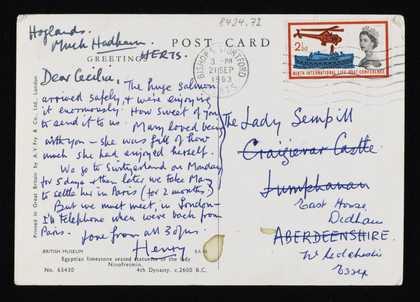 8424.72
Hoglands.
Much Hadham.
HERTS.
POST CARD
GREETING
Dear Cecilia, The huge salmon
arrived safely, & we're enjoying
it enormously. How sweet of you
to send it to us. Mary loved being
with you – she was full of how
much she had enjoyed herself.
We go to Switzerland on Monday
for 5 days & then later we take Mary
to settle her in Paris (for 2 months)
But we must meet, in London –
I'll telephone when we're back from
Paris. Love from all 3 of us.
Henry
BRITISH MUSEUM
Egyptian limestone seated statuette of the lady
Nenofresmin.
No. 63430
4th Dynasty. c.2600 B.C.
Printed in Great Britain by A. F. & Co. Ltd., London
BISHOP'S STORTFORD
3 - PM
21 SEP
1963
2½d
NINTH INTERNATIONAL LIFE-BOAT CONFERENCE
The Lady Sempill
Craigievar Castle
Lumphanan
East House,
Dedham
ABERDEENSHIRE.
Nr Colchester
Essex